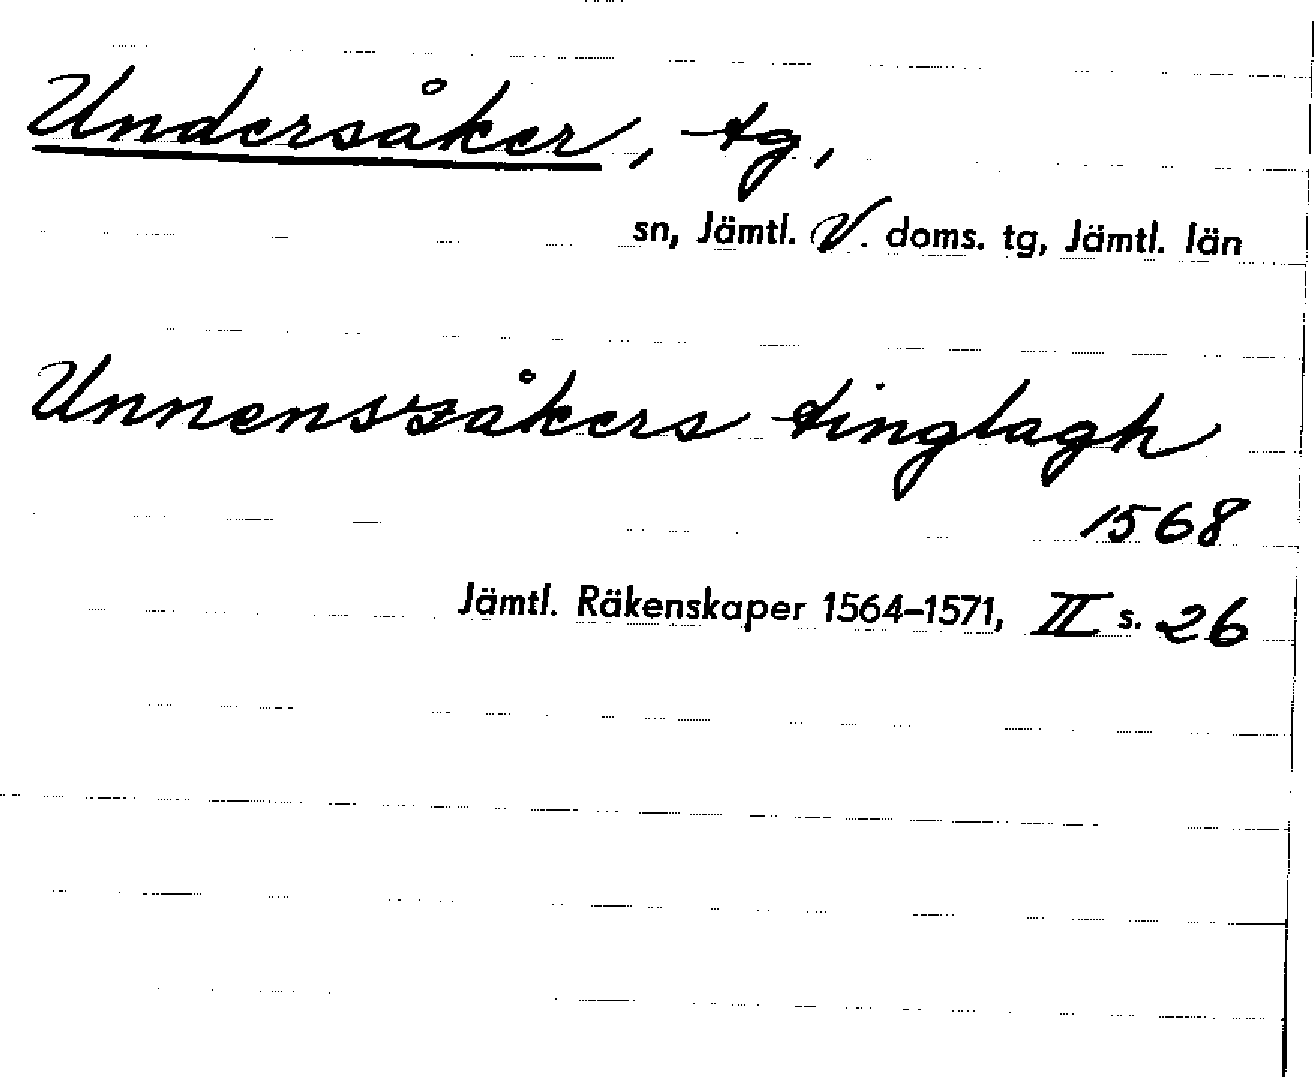 Undersåker, tg,
sn, Jämtl. V. doms. tg, Jämtl. län
Unnenszåkers tinglagh
1568
Jämtl. Räkenskaper 1564–1571, II s. 26